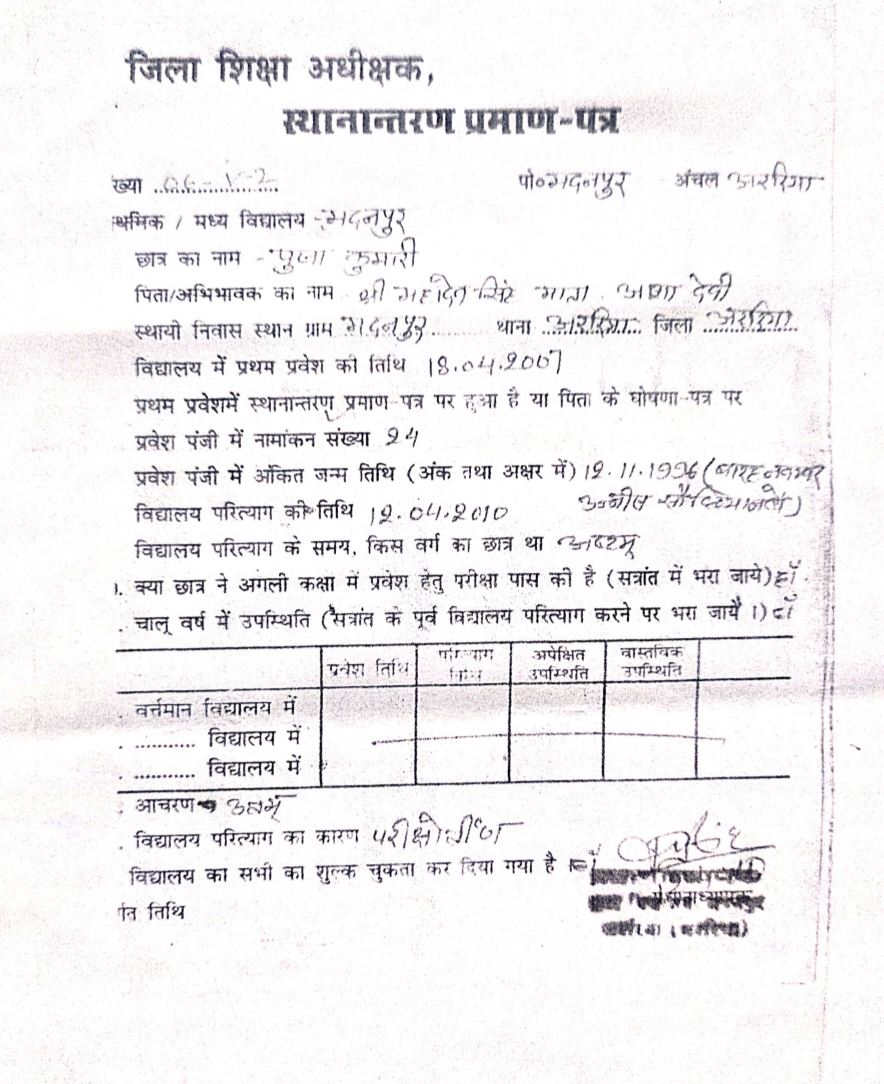 जिला शिक्षा अधीक्षक,
स्थानान्तरण प्रमाण-पत्र
ख्या ..................... पो०मदनपुर अंचल अररिया
थमिक / मध्य विद्यालय - मदनपुर
छात्र का नाम - पुजा कुमारी
पिता/अभिभावक का नाम श्री सिंह माता देवी
स्थायी निवास स्थान ग्राम मदनपुर......... थाना ..अररिया... जिला ..अररिया..
विद्यालय में प्रथम प्रवेश की तिथि 18.04.2007
प्रथम प्रवेशमें स्थानान्तरण प्रमाण-पत्र पर हुआ है या पिता के घोषणा-पत्र पर
प्रवेश पंजी में नामांकन संख्या 24
प्रवेश पंजी में अंकित जन्म तिथि (अंक तथा अक्षर में) 12.11.1996 (बारह नवम्बर
विद्यालय परित्याग की तिथि 12.04.2010
विद्यालय परित्याग के समय, किस वर्ग का छात्र था अष्टम्
१. क्या छात्र ने अगली कक्षा में प्रवेश हेतु परीक्षा पास की है (सत्रांत में भरा जाये) हाँ
. चालू वर्ष में उपस्थिति (सत्रांत के पूर्व विद्यालय परित्याग करने पर भरा जाये ।) हाँ
प्रवेश तिथि परित्याग तिथि अपेक्षित उपस्थिति वास्तविक उपस्थिति
. वर्त्तमान विद्यालय में
. ........... विद्यालय में
. ........... विद्यालय में
. आचरण उत्तम्
. विद्यालय परित्याग का कारण परीक्षोत्तीर्ण
विद्यालय का सभी का शुल्क चुकता कर दिया गया है हाँ
तिथि